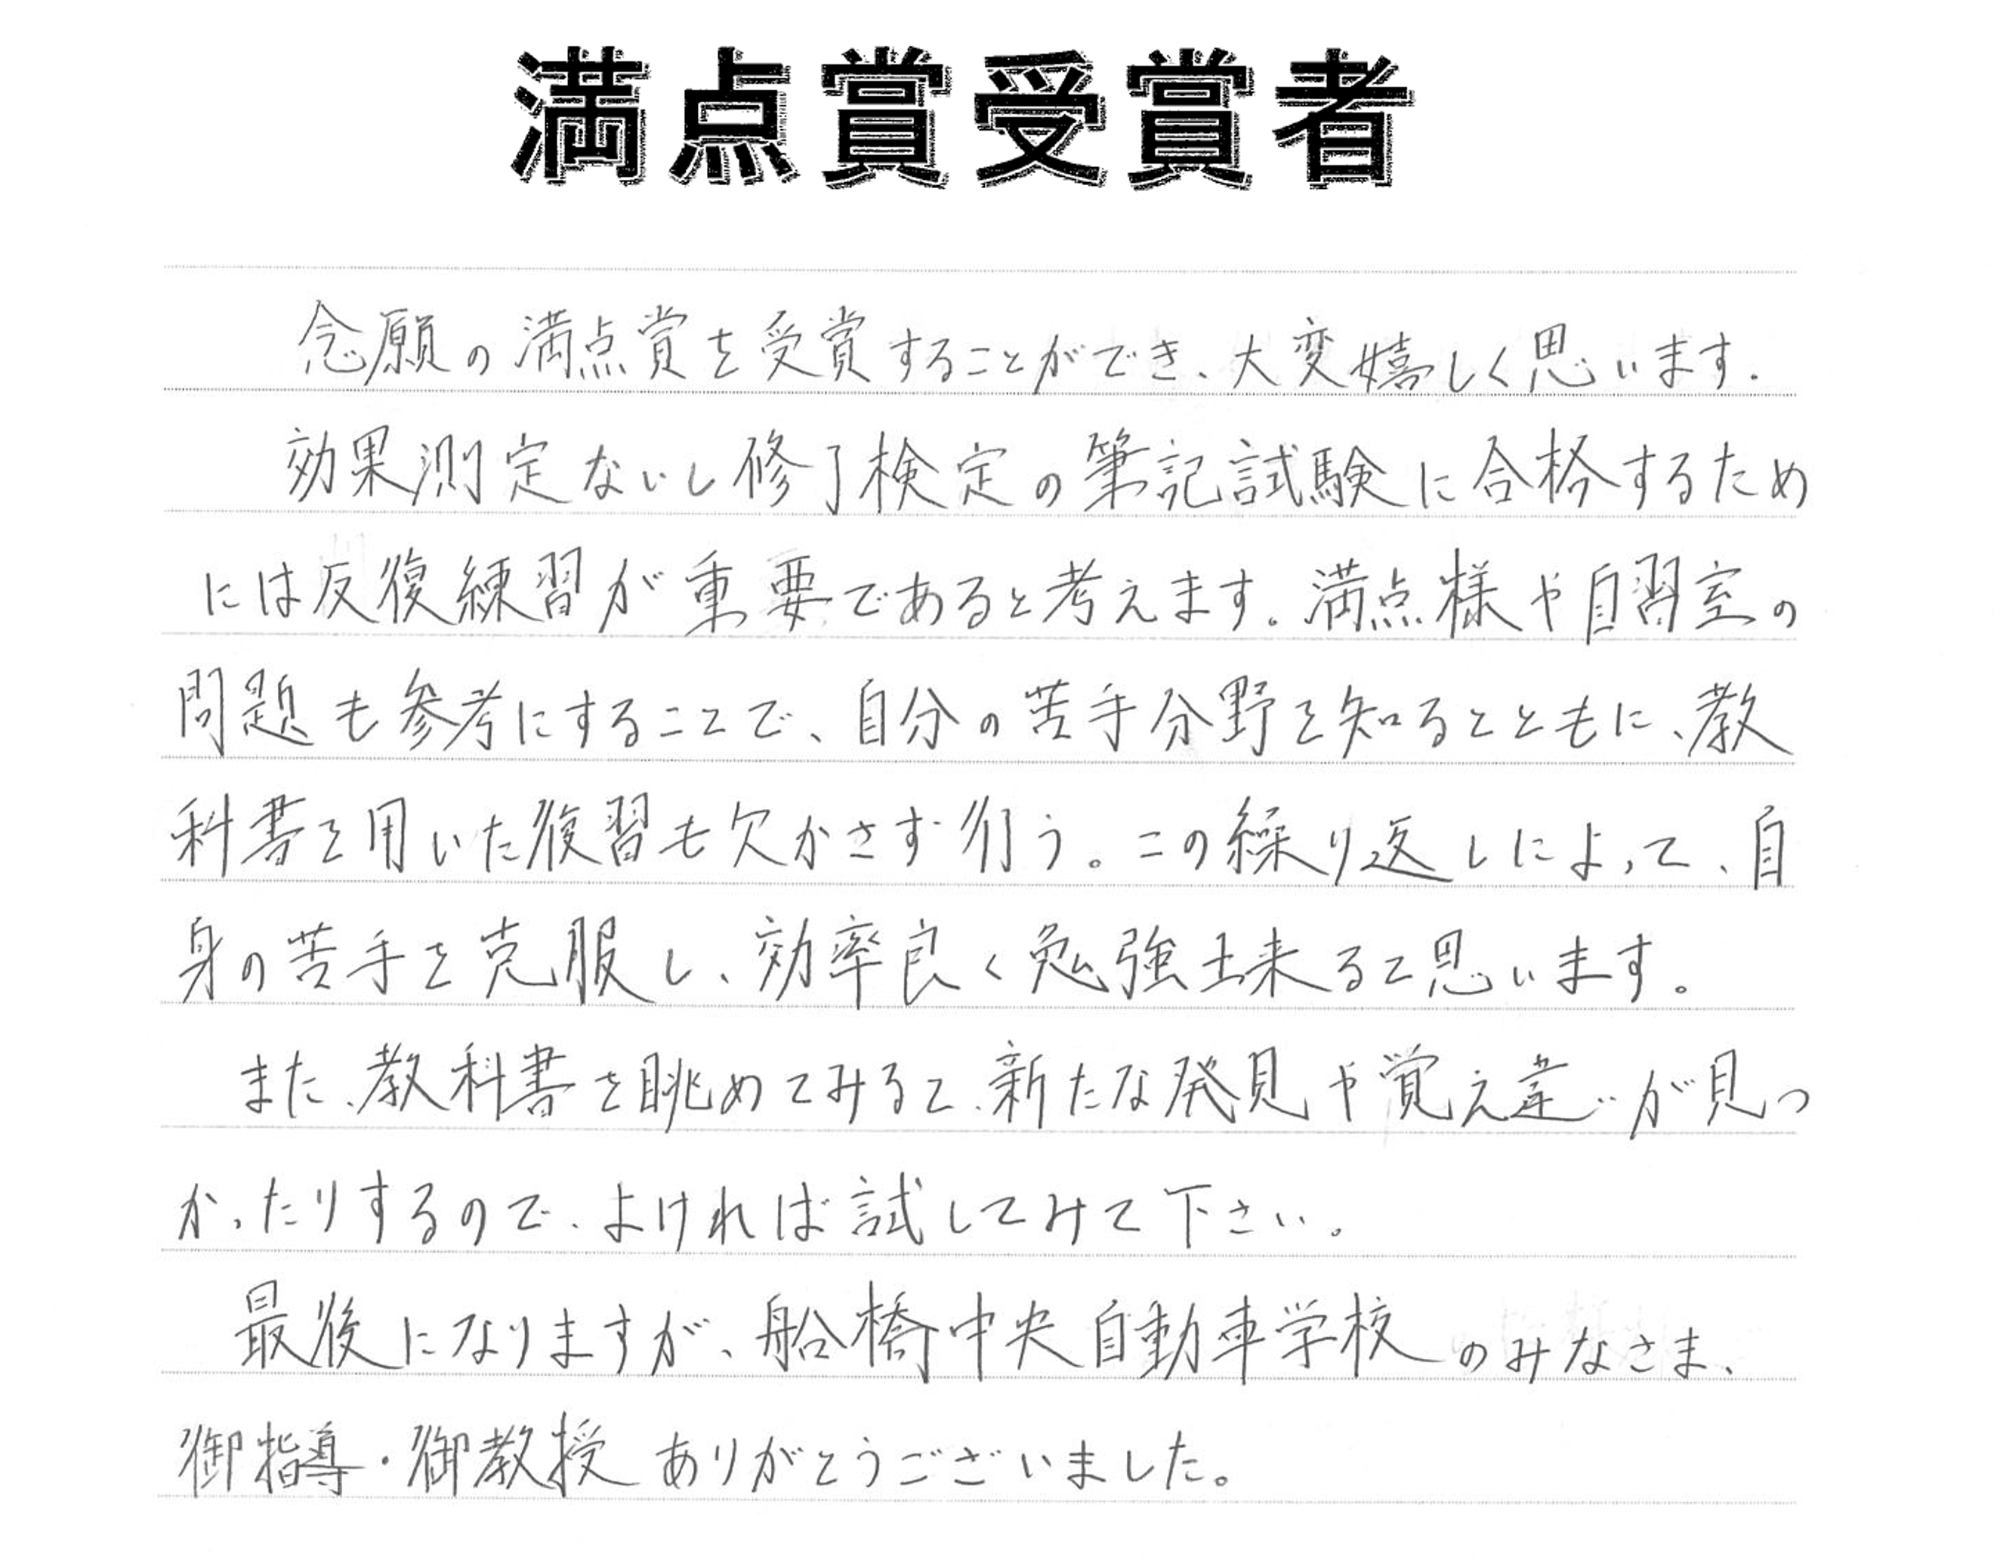 満点賞受賞者
念願の満点賞を受賞することができ、大変嬉しく思います.
効果測定ないし修了検定の筆記試験に合格するため
には反復練習が重要であると考えます。満点様や自習室の
問題も参考にすることで、自分の苦手分野を知るとともに、教
科書を用いた復習も欠かさず行う。この繰り返しによって、自
身の苦手を克服し、効率良く勉強出来ると思います。
また、教科書を眺めてみると、新たな発見や覚え違いが見つ
かったりするので、よければ試してみて下さい。
最後になりますが、船橋中央自動車学校のみなさま、
御指導・御教授ありがとうございました。